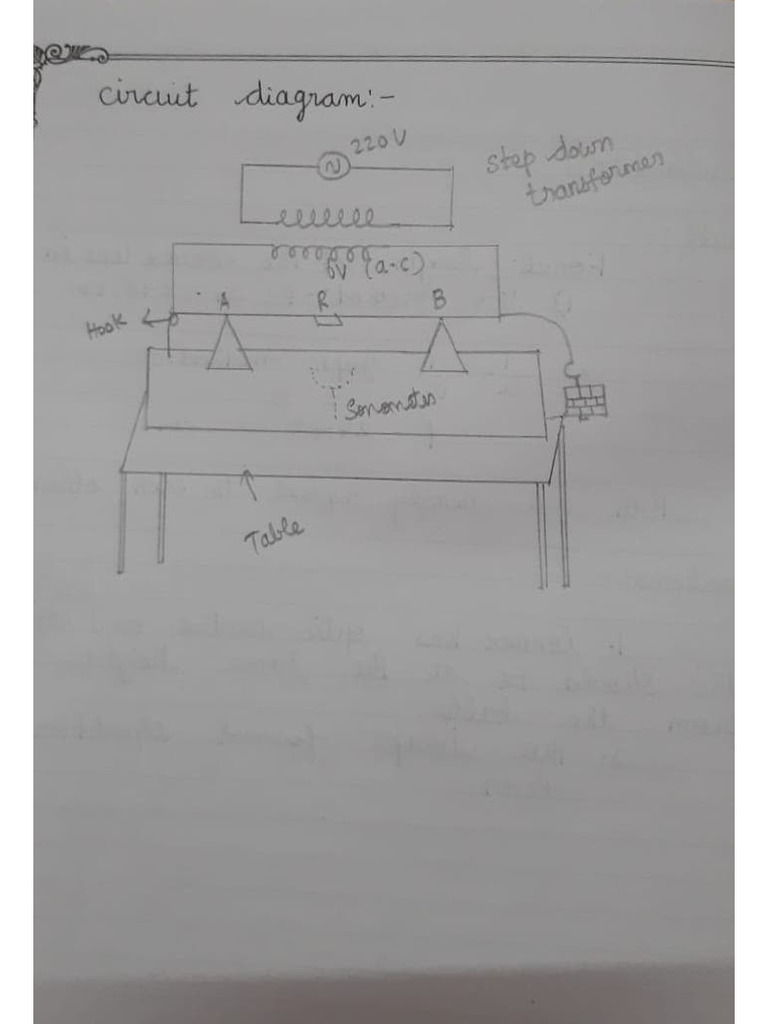 circuit diagram:-
220V
step down
transformer
6V (a-c)
A R B
Hook
Sonometer
Table